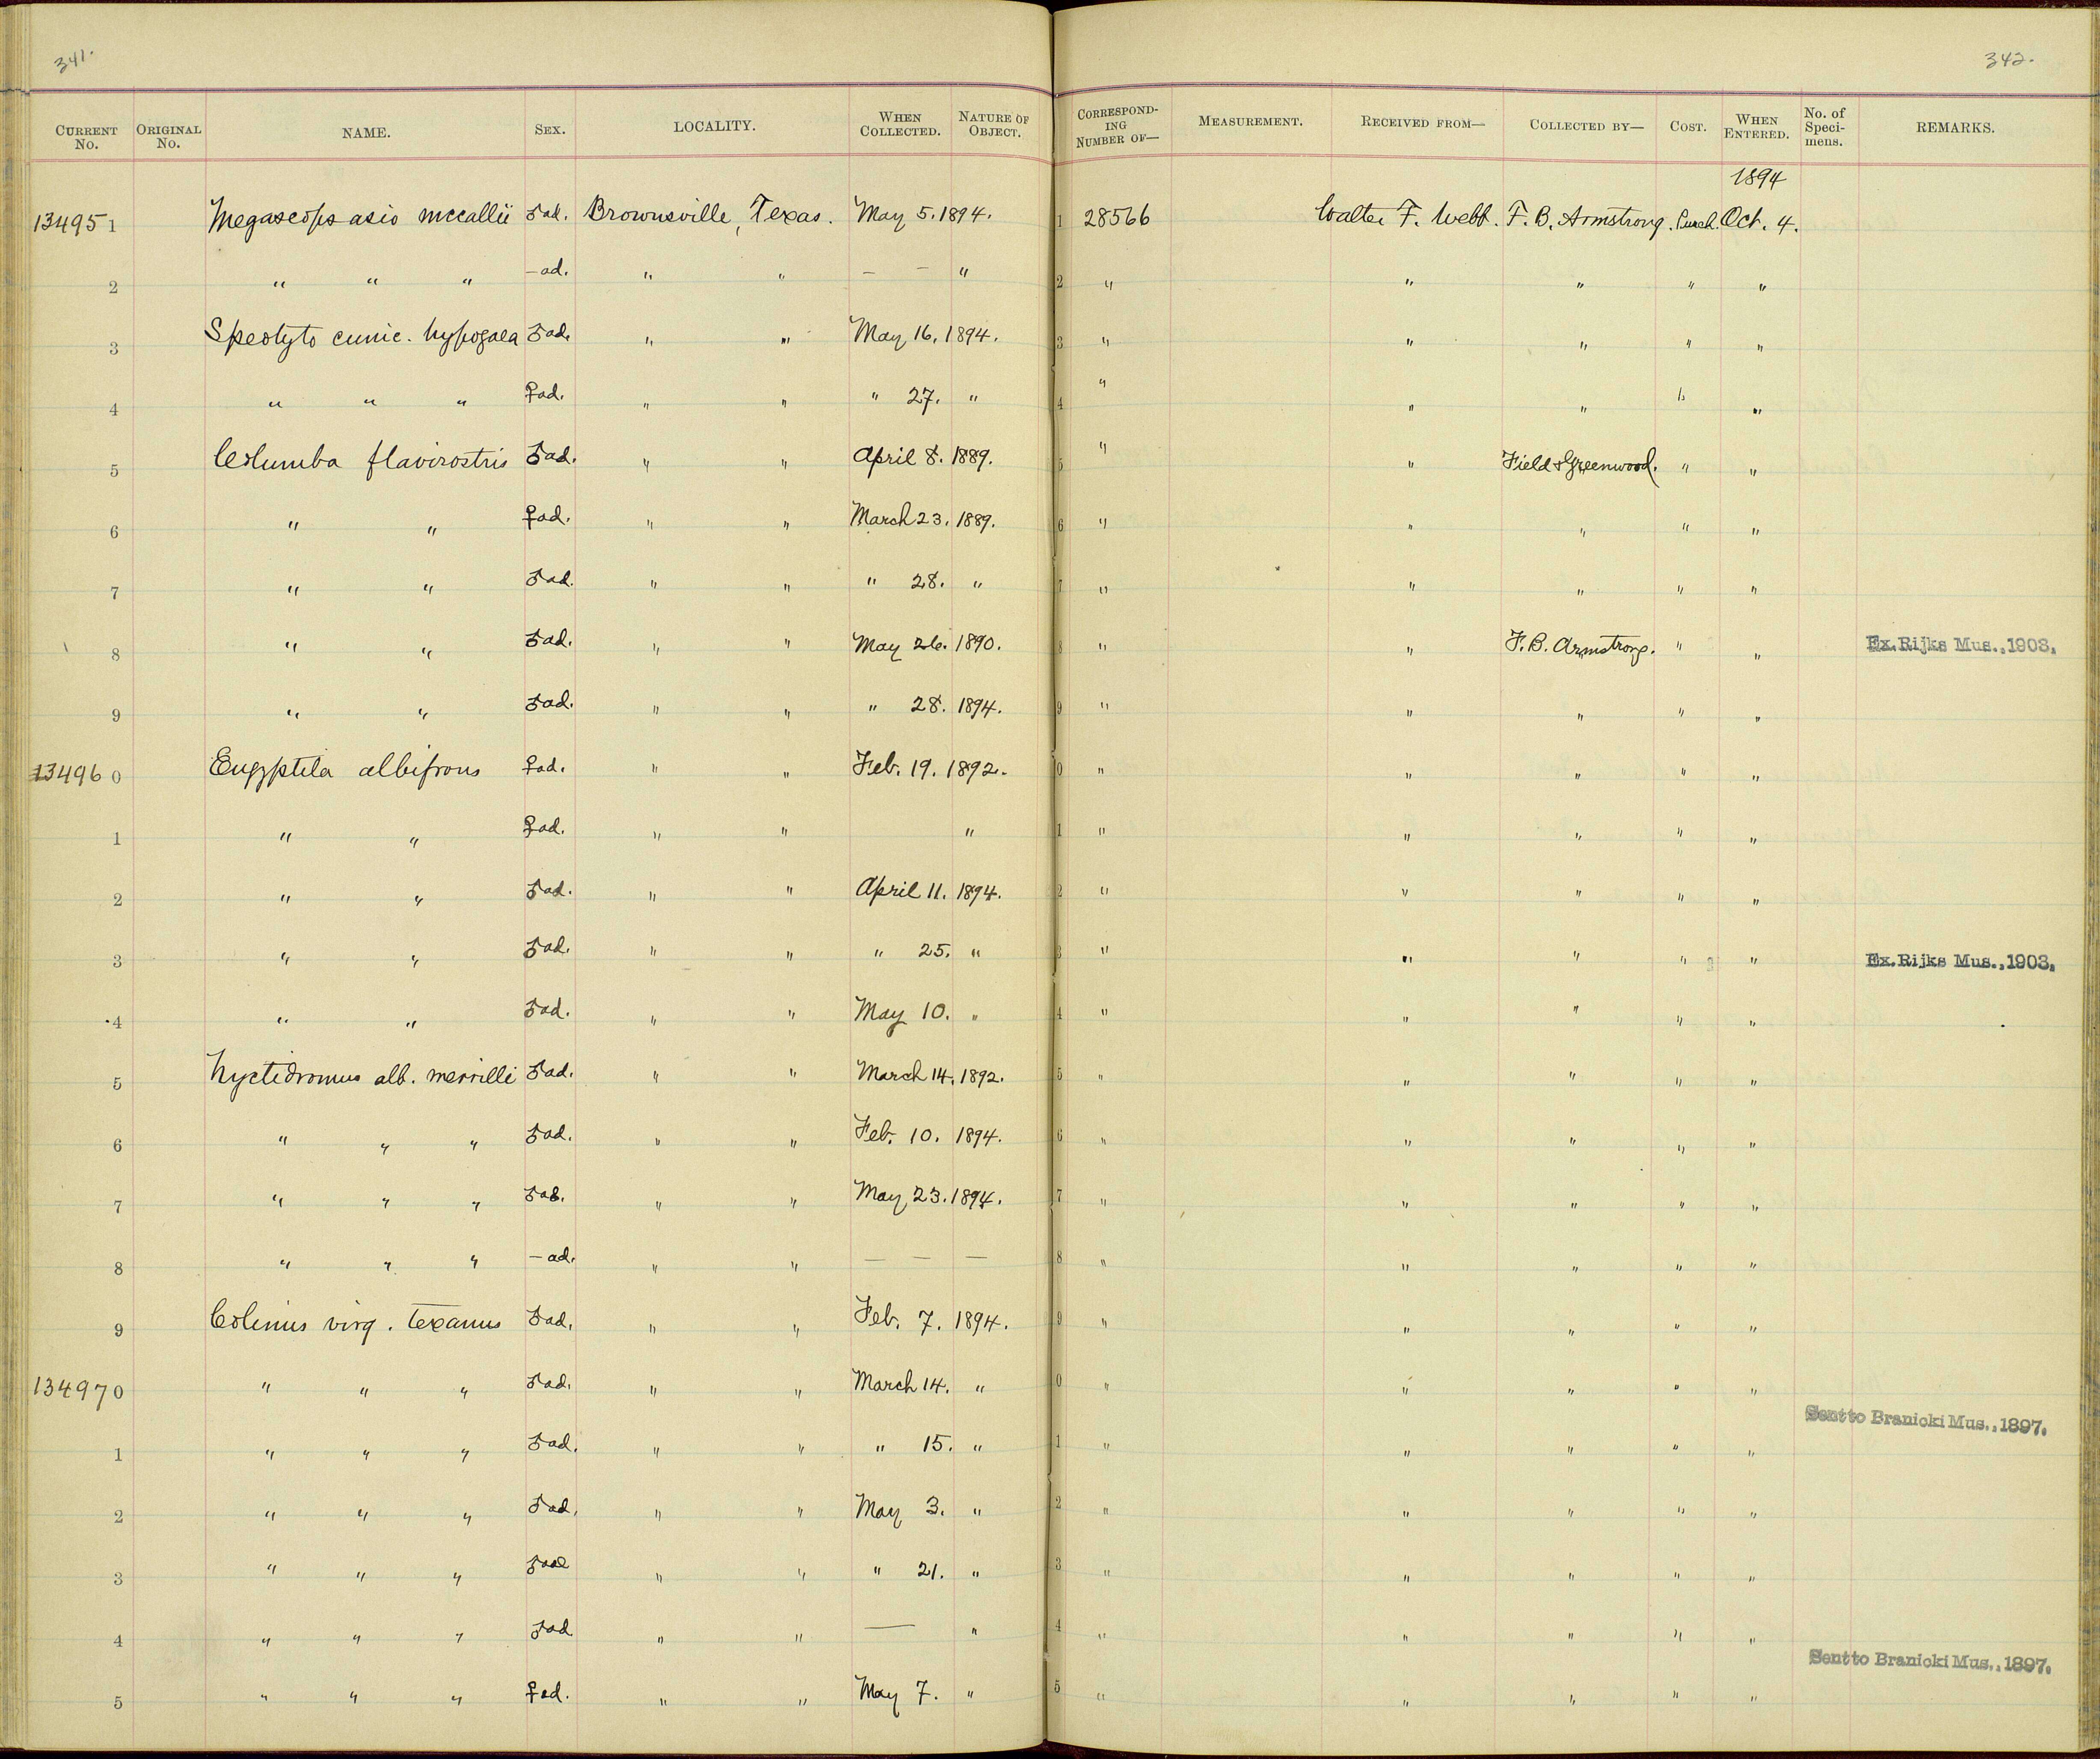 341.
342.
CURRENT No. ORIGINAL No. NAME. SEX. LOCALITY. WHEN COLLECTED. NATURE OF OBJECT. CORRESPONDING NUMBER OF— MEASUREMENT. RECEIVED FROM— COLLECTED BY— COST. WHEN ENTERED. No. of Specimens. REMARKS.
1894
134951 Megascops asio mccallii ♂ad. Brownsville, Texas. May 5. 1894. 1 28566 Walter F. Webb. F. B. Armstrong. Purch. Oct. 4.
2 " " " – ad. " " – – " 2 " " " " "
3 Speotyto cunic. hypogaea ♂ad. " " May 16, 1894. 3 " " " " "
4 " " " ♀ad. " " " 27. " 4 " " " " "
5 Columba flavirostris ♂ad. " " April 8. 1889. 5 " " Field & Greenwood. " "
6 " " ♀ad. " " March 23. 1889. 6 " " " " "
7 " " ♂ad. " " " 28. " 7 " " " " "
8 " " ♂ad. " " May 26. 1890. 8 " " F. B. Armstrong. " " Ex. Rijks Mus., 1903.
9 " " ♂ad. " " " 28. 1894. 9 " " " " "
134960 Engyptila albifrons ♀ad. " " Feb. 19. 1892. 0 " " " " "
1 " " ♀ad. " " " 1 " " " " "
2 " " ♂ad. " " April 11. 1894. 2 " " " " "
3 " " ♂ad. " " " 25. " 3 " " " " " Ex. Rijks Mus., 1903.
4 " " ♂ad. " " May 10. " 4 " " " " "
5 Nyctidromus alb. merrilli ♂ad. " " March 14, 1892. 5 " " " " "
6 " " " ♂ad. " " Feb. 10. 1894. 6 " " " " "
7 " " " ♂ad. " " May 23. 1894. 7 " " " " "
8 " " " – ad. " " — — — 8 " " " " "
9 Colinus virg. texanus ♂ad. " " Feb. 7. 1894. 9 " " " " "
134970 " " " ♂ad. " " March 14. " 0 " " " " "
Sent to Branicki Mus., 1897.
1 " " " ♂ad. " " " 15. " 1 " " " " "
2 " " " ♂ad. " " May 3. " 2 " " " " "
3 " " " ♂ad " " " 21. " 3 " " " " "
4 " " " ♂ad " " — " 4 " " " " "
Sent to Branicki Mus., 1897.
5 " " " ♀ad. " " May 7. " 5 " " " " "